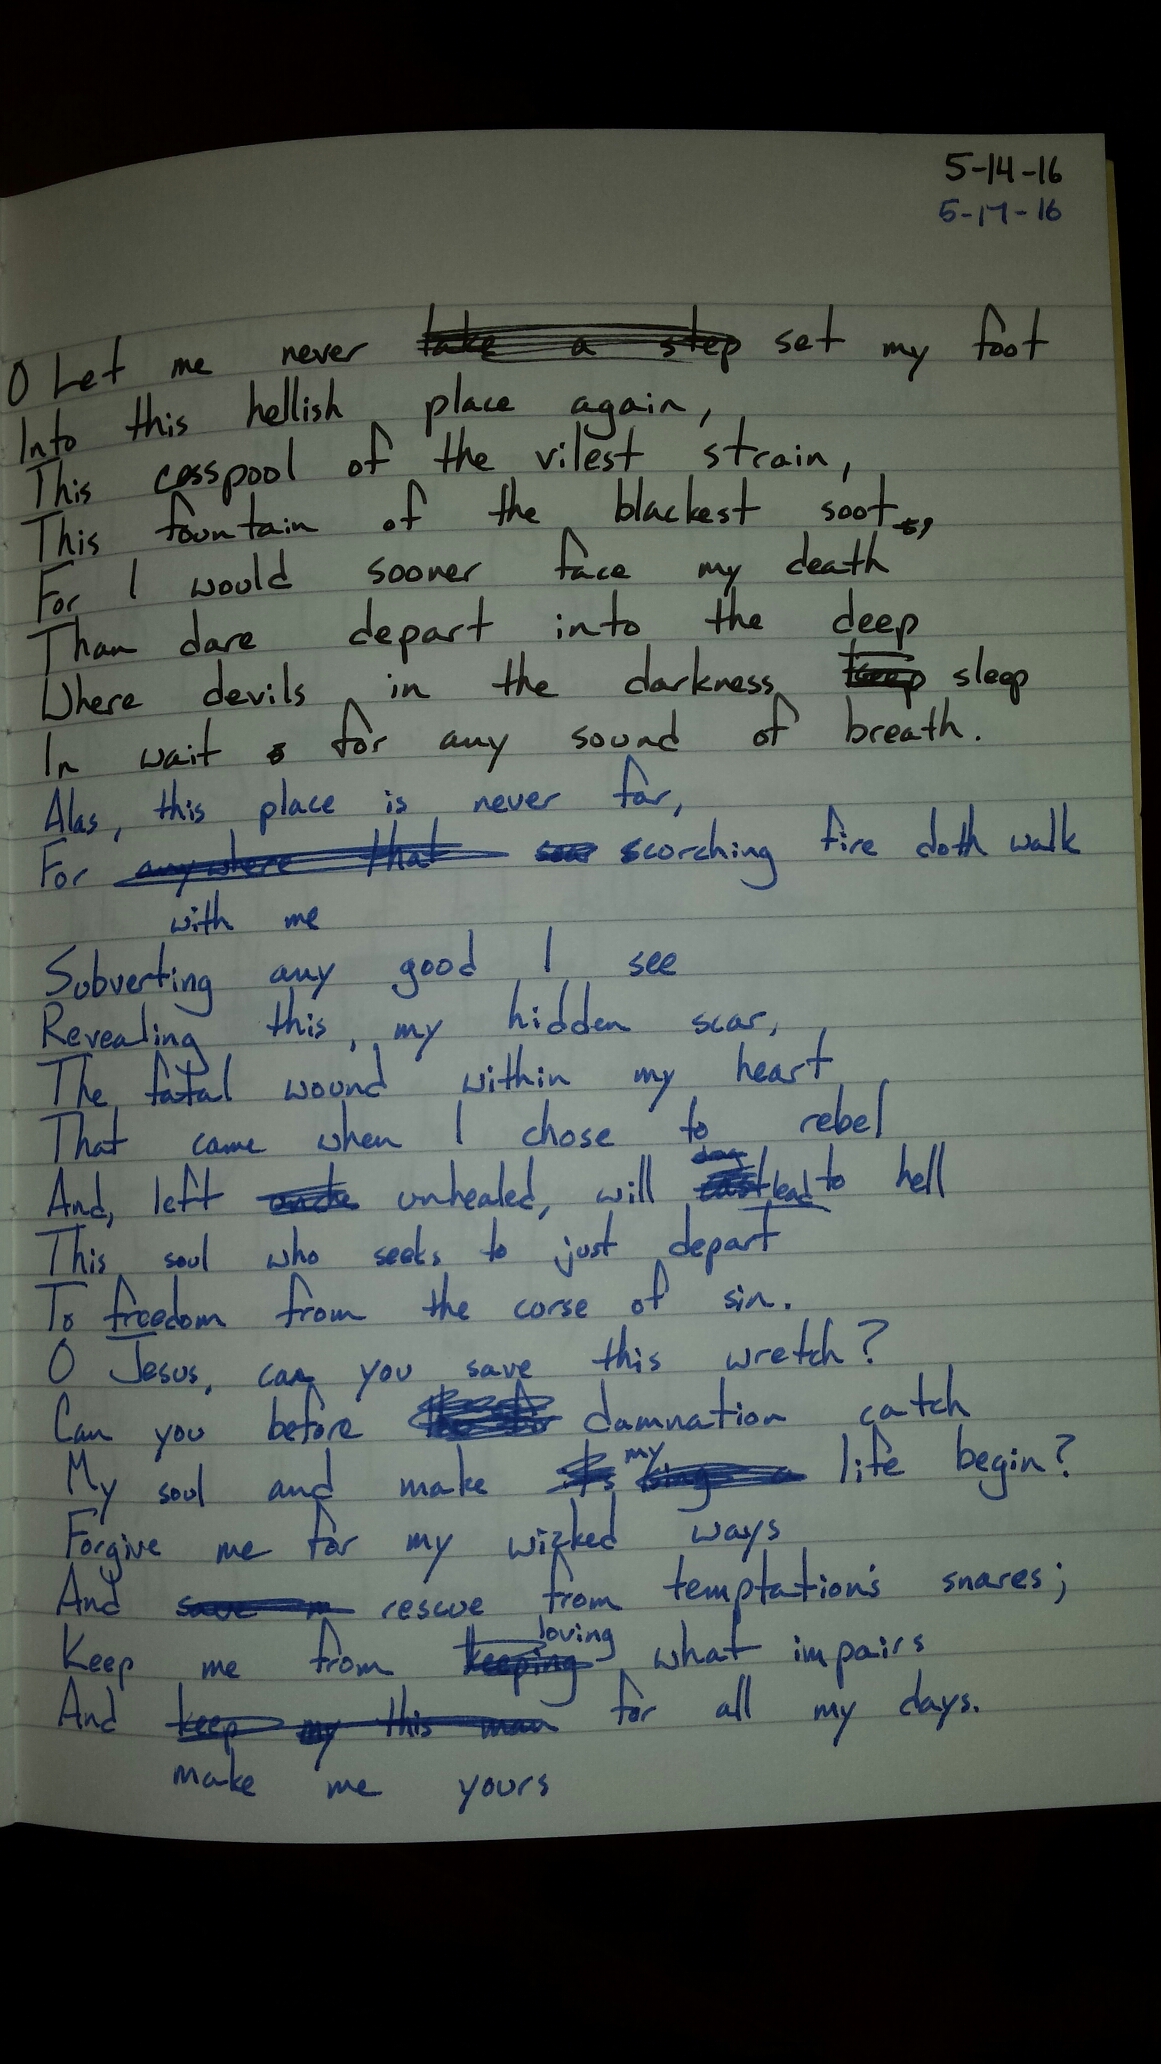 5-14-16
5-17-16
O Let me never take a step set my foot
Into this hellish place again,
This cesspool of the vilest strain,
This fountain of the blackest soot,
For I would sooner face my death
Than dare depart into the deep
Where devils in the darkness keep sleep
In wait for any sound of breath.
Alas, this place is never far,
For anywhere that scorching fire doth walk
with me
Subverting any good I see
Revealing this, my hidden scar,
The fatal wound within my heart
That came when I chose to rebel
And, left unhealed, will lead to hell
This soul who seeks to just depart
To freedom from the corse of sin.
O Jesus, can you save this wretch?
Can you before damnation catch
My soul and make my life begin?
Forgive me for my wicked ways
And save m rescue from temptation's snares;
Keep me from keeping loving what impairs
And keep my this man for all my days.
make me yours